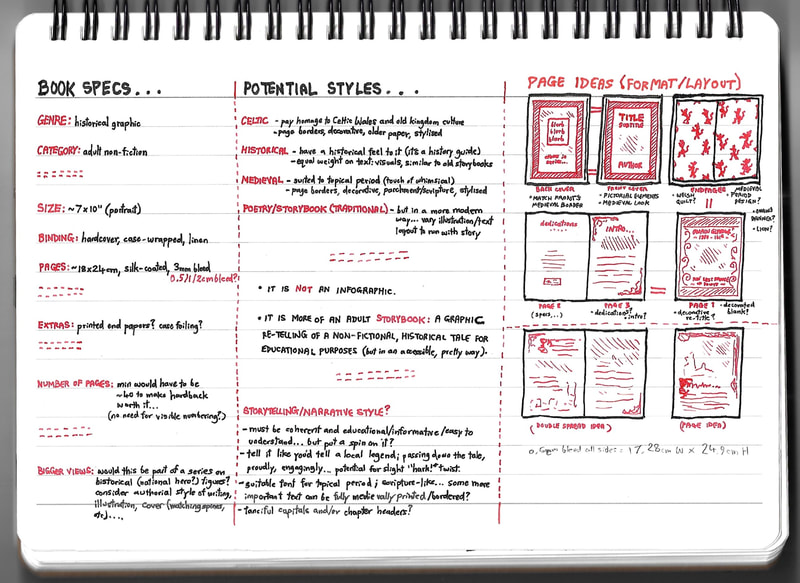 BOOK SPECS...
GENRE: historical graphic
CATEGORY: adult non-fiction
SIZE: ~7x10" (portrait)
BINDING: hardcover, case-wrapped, linen
PAGES: ~18x24cm, silk-coated, 3mm bleed
0.5/1/2cm bleed?
EXTRAS: printed end papers? case foiling?
NUMBER OF PAGES: min would have to be
~40 to make hardback
worth it...
(no need for visible numbering?)
BIGGER VIEWS: would this be part of a series on
historical (national hero?) figures?
consider authorial style of writing,
illustration, cover (matching spines,
etc)....
POTENTIAL STYLES...
CELTIC - pay homage to Celtic Wales and old kingdom culture
- page borders, decorative, older paper, stylised
HISTORICAL - have a historical feel to it (its a history guide)
- equal weight on text:visuals, similar to old storybooks
MEDIEVAL - suited to topical period (touch of whimsical)
- page borders, decorative, parchment/scripture, stylised
POETRY/STORYBOOK (TRADITIONAL) - but in a more modern
way... vary illustration/text
layout to run with story
• IT IS NOT AN INFOGRAPHIC.
• IT IS MORE OF AN ADULT STORYBOOK: A GRAPHIC
RE-TELLING OF A NON-FICTIONAL, HISTORICAL TALE FOR
EDUCATIONAL PURPOSES (but in an accessible, pretty way).
STORYTELLING/NARRATIVE STYLE?
- must be coherent and educational/informative/easy to
understand... but put a spin on it?
- tell it like you'd tell a local legend; passing down the tale,
proudly, engagingly... potential for slight "hark!" twist.
- suitable font for topical period; scripture-like... some more
important text can be fully medievally printed/bordered?
- fanciful capitals and/or chapter headers?
PAGE IDEAS (FORMAT/LAYOUT)
blurb
blurb
blurb
TITLE
AUTHOR
BACK COVER
• MATCH FRONT'S
MEDIEVAL BORDER
FRONT COVER
• PICTORIAL ELEMENTS
• MEDIEVAL LOOK
ENDPAGES
• WELSH
QUILT?
• MEDIEVAL
PERIOD
DESIGN?
• LION?
dedications
INTRO...
PAGE 2
(specs...)
PAGE 3
• dedication?
• intro?
PAGE 1
• decorative
re-title?
• decorated
blank?
(DOUBLE SPREAD IDEA)
(PAGE IDEA)